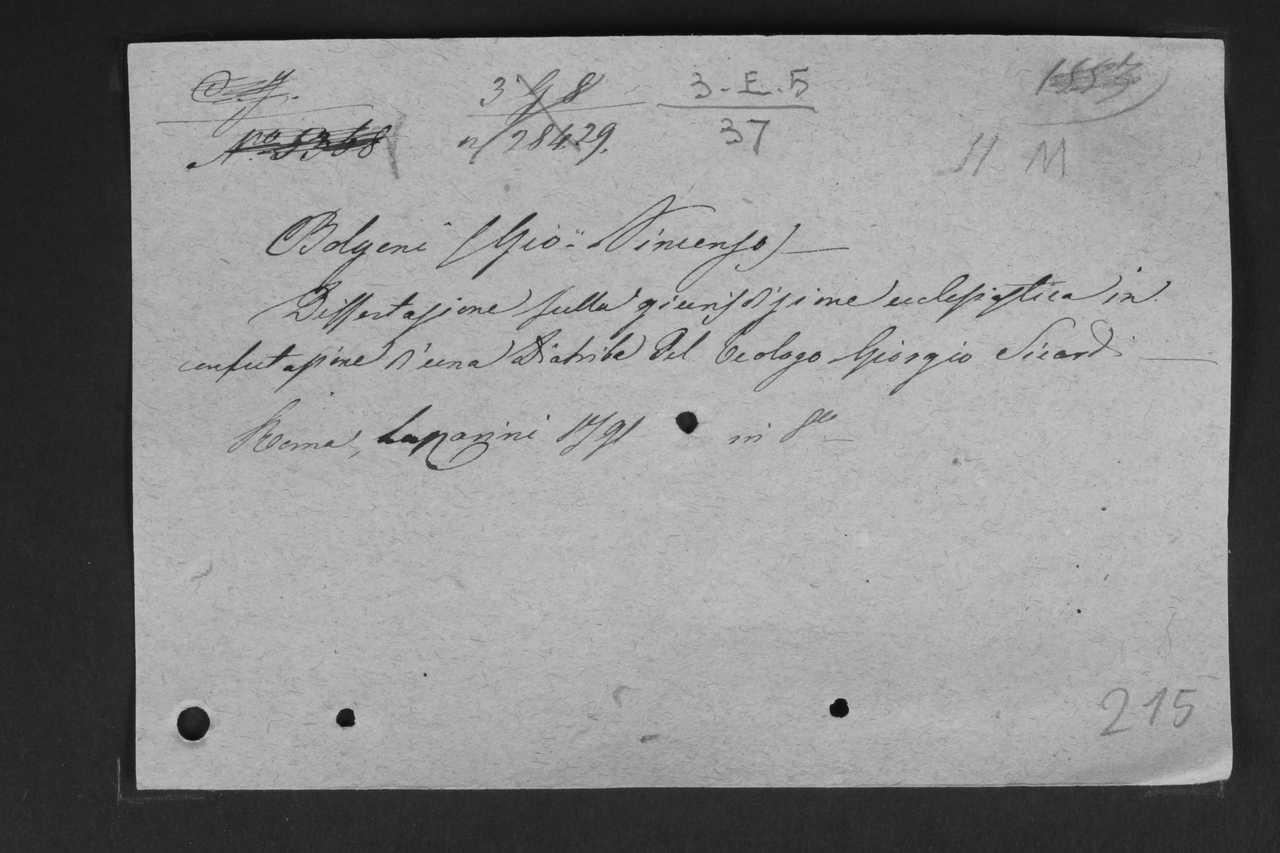 3 g 8 3. E. 5
Nº 5368 n/ 28429. 37
H M
Bolgeni (Gio: Vincenzo)
Dissertazione sulla giurisdizione ecclesiastica in
confutazione d'una Diatriba del Teologo Giorgio Sicardi
Roma, Lazzarini 1791 in 8º
215